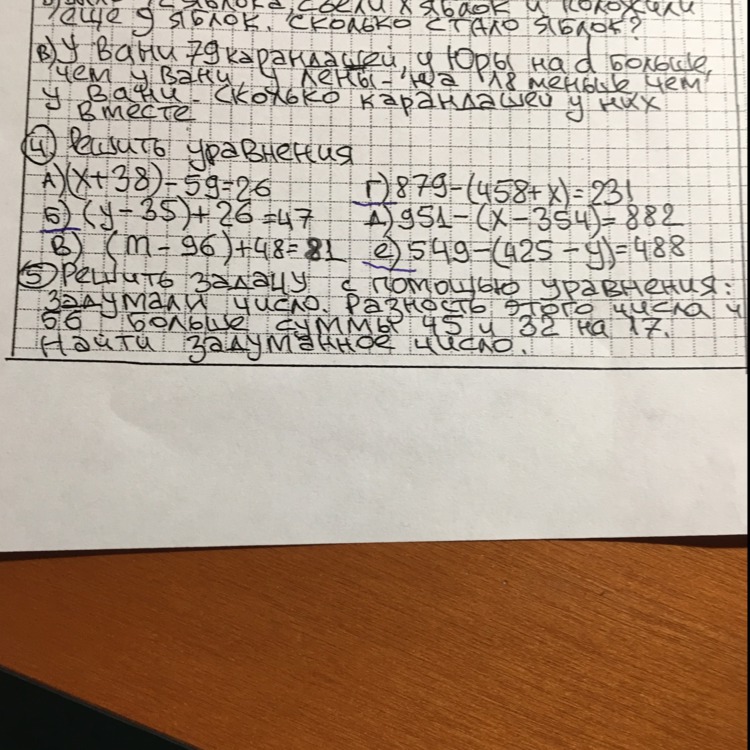 яблока, съели х яблок и положили
еще 9 яблок. Сколько стало яблок?
в) У Вани 79 карандашей, у Юры на d больше,
чем у Вани у Лены - на 18 меньше чем
у Вани. Сколько карандашей у них
вместе
4 Решить уравнения
А) (х+38)-59=26
Г) 879-(458+х)=231
б) (у-35)+26=47
Д) 951-(х-354)=882
В) (m-96)+48=81
е) 549-(425-у)=488
5 Решить задачу с помощью уравнения:
Задумали число. Разность этого числа и
66 больше суммы 45 и 32 на 17.
Найти задуманное число.